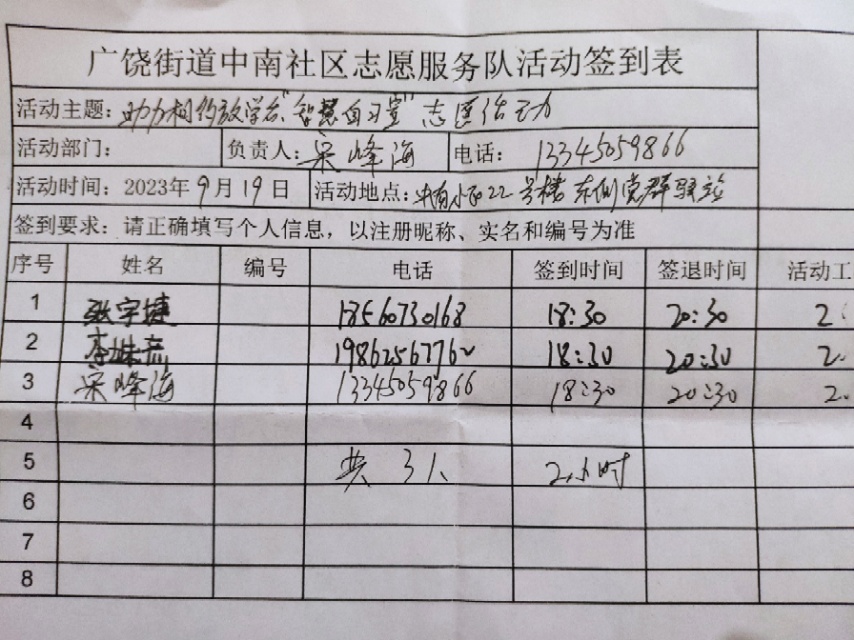 广饶街道中南社区志愿服务队活动签到表
活动主题：助力相约放学后"智慧自习室"志愿活动
活动部门： 负责人：宋峰海 电话：13345059866
活动时间：2023年9月19日 活动地点：中南小区22号楼东侧党群驿站
签到要求：请正确填写个人信息，以注册昵称、实名和编号为准
序号 姓名 编号 电话 签到时间 签退时间 活动工
1 张宇捷 18560730168 18:30 20:30 2.
2 李 18:30 20:30 2.
3 宋峰海 13345059866 18:30 20:30 2.
4
5 共3人 2小时
6
7
8